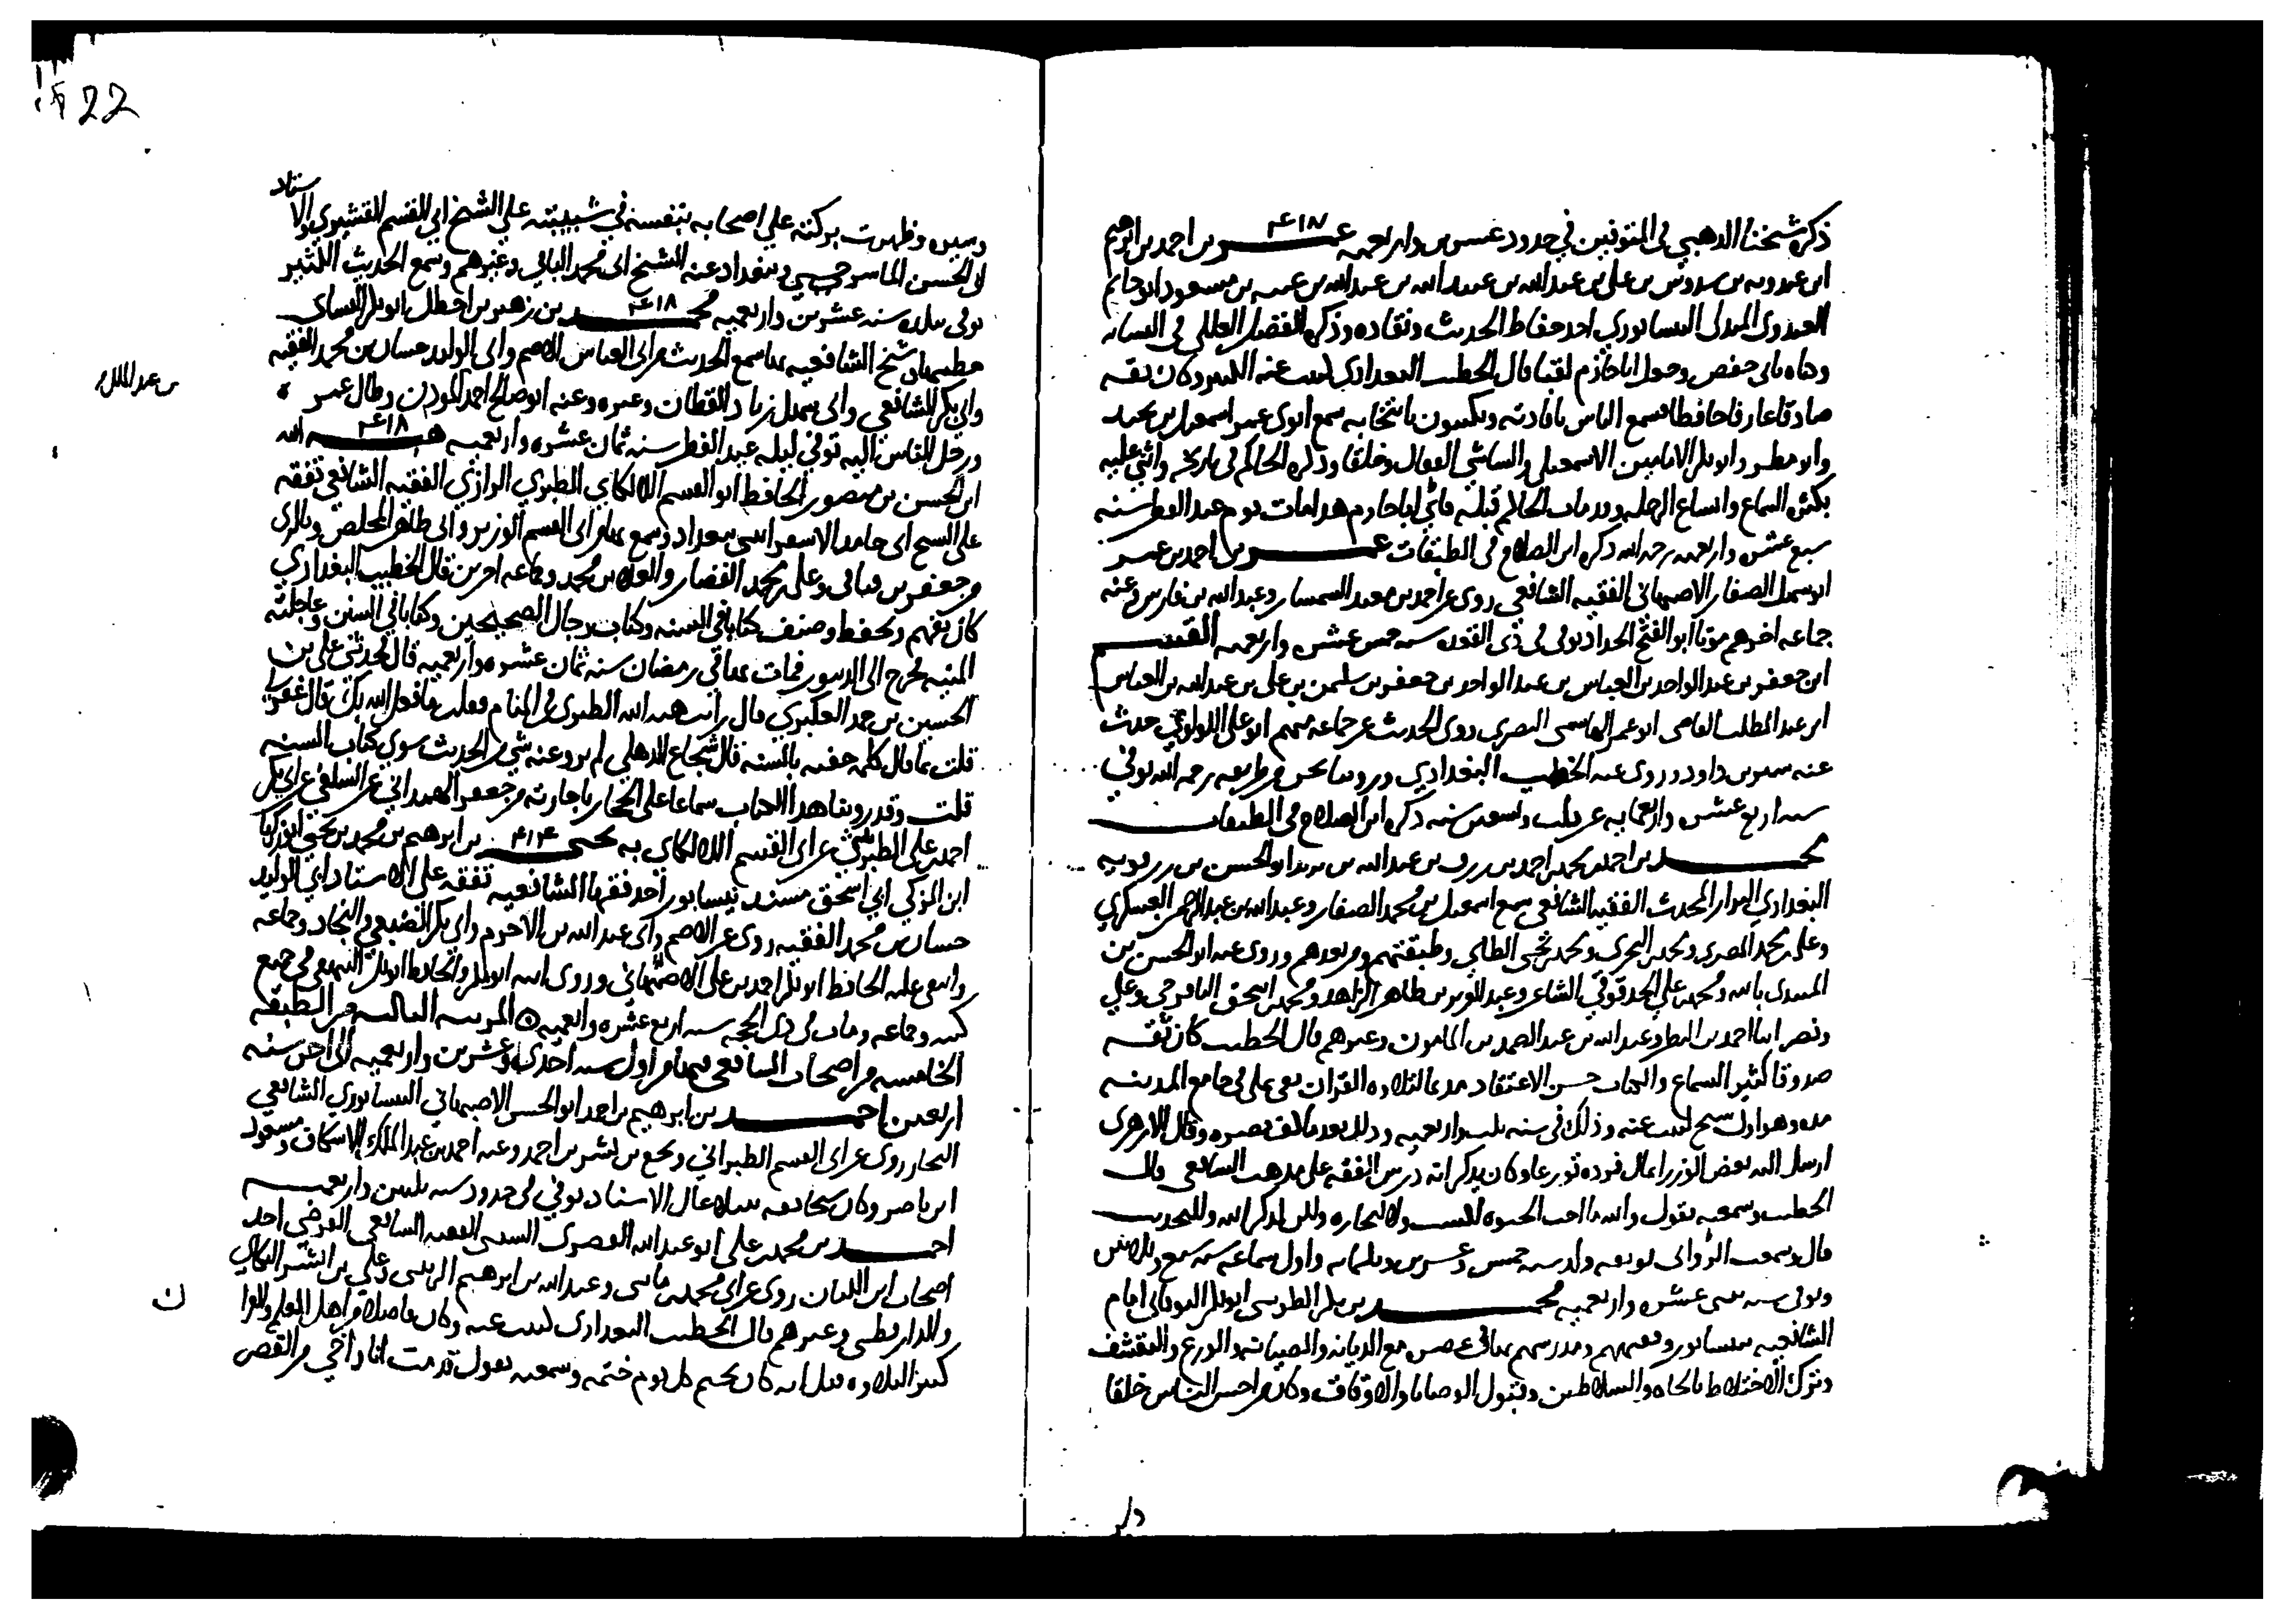 ذكره شيخنا الذهبي في المتوفين في حدود عشرين واربعمية عمر بن احمد بن ابرهيم
ابن عبدويه بن سدوس بن علي بن عبد الله بن عبيد الله بن عبد الله بن عتبه بن مسعود ابو حازم
العبدوي الهذلي النيسابوري احد حفاظ الحديث ونقاده وذكره الفضل الفلكي في
بابي حفص وجعل ابا حازم لقبا قال الخطيب البغدادي كتبت عنه الكثير وكان ثقه
صادقا عارفا حافظا يسمع الناس بافادته ويكتبون بانتخابه سمع ابوي عمر اسمعيل بن نجيد
وابن مطر وابو بكر الامامين الاسمعيلي والشاشي القفال وخلقا وذكره الحاكم في تاريخه واثنى عليه
بكثرة السماع واتساع الرحله وقد مات الحاكم قبله فاني ابا حازم هذا مات يوم عيد الفطر سنه
سبع عشره واربعميه رحمه الله ذكره ابن الصلاح في الطبقات عمر بن احمد بن عمر
ابو سهل الصفار الاصبهاني الفقيه الشافعي روى عن احمد بن معبد السمسار وعبد الله بن فارس وعنه
جماعه اخرهم موتا ابو الفتح الحداد توفي في ذي القعده سنه خمس عشره واربعميه القسم
ابن جعفر بن عبد الواحد بن العباس بن عبد الواحد بن جعفر بن سليمن بن علي بن عبد الله بن العباس
ابن عبد المطلب القاضي ابو عمر الهاشمي البصري روى الحديث عن جماعه منهم ابو علي اللولوي حدث
عنه سنن ابي داود وروى عنه الخطيب البغدادي ورويناه نحن من طريقه رحمه الله توفي
سنه اربع عشره واربعمايه عن ثلث وتسعين سنه ذكره ابن الصلاح في الطبقات
محمد بن احمد بن محمد بن احمد بن رزق بن عبد الله بن يزيد ابو الحسن بن رزقويه
البغدادي البزار المحدث الفقيه الشافعي سمع اسمعيل بن محمد الصفار وعبد الله بن عبد الرحمن العسكري
وعلي بن محمد المصري ومحمد بن البحتري ومحمد بن يحيى الطائي وطبقتهم ومن بعدهم وروى عنه ابو الحسن بن
المهتدي بالله ومحمد بن علي الحندقوقي الشاعر وعبد العزيز بن طاهر الزاهد ومحمد بن اسحق الباقرحي وعلي
ونصر ابنا احمد بن البطر وعبد الله بن عبد الصمد بن المامون وغيرهم قال الخطيب كان ثقه
صدوقا كثير السماع والكتاب حسن الاعتقاد مديما لتلاوه القران بقي يملي في جامع المدينه
مده وهو اول شيخ كتبت عنه وذلك في سنه ثلث واربعميه وذلك بعد ما كف بصره وقال الازهري
ارسل اليه بعض الوزرا بمال فرده تورعا وكان يذكر انه درس الفقه على مذهب الشافعي قال
الخطيب وسمعته يقول والله ما احب الحيوه للكسب ولا لتجاره ولكن لذكر الله وللتحديث
قال وسمعت البرقاني يوثقه ولد سنه خمس وعشرين وثلثمايه واول سماعه سنه سبع وثلاثين
وتوفي سنه اثنتي عشره واربعميه محمد بن بكر الطوسي ابو بكر النوقاني امام
الشافعيه بنيسابور وفقيههم ومدرسهم بها في عصره مع الديانه والصيانه والورع والتقشف
وترك الاختلاط بالجاه والسلاطين وقبول الوصايا والاوقاف وكان من احسن الناس خلقا
وسيره وظهرت بركته على اصحابه تفقه في شبيبته على الشيخ ابي القسم القشيري والاستاد
ابي الحسن الماسرجسي وببغداد عند الشيخ ابي محمد البافي وغيرهم وسمع الحديث الكثير
توفي ببلده سنه عشرين واربعميه محمد بن زهير بن اخطل ابو بكر النسائي
خطيبها وشيخ الشافعيه بها سمع الحديث من ابي العباس الاصم وابي الوليد حسان بن محمد الفقيه
وابي بكر الشافعي وابي سهل بن زياد القطان وغيره وعنه ابو صالح احمد الموذن وطال عمره
ورحل الناس اليه توفي ليله عيد الفطر سنه ثمان عشره واربعميه هبه الله
ابن الحسن بن منصور الحافظ ابو القسم اللالكاي الطبري الرازي الفقيه الشافعي تفقه
على الشيخ ابي حامد الاسفرايني ببغداد وسمع بها من ابي القسم الوزير وابي طاهر المخلص وبالري
من جعفر بن فناكي وعلي بن محمد القصار والعلا بن محمد وجماعه اخرين قال الخطيب البغدادي
كان يفهم ويحفظ وصنف كتابا في السنه وكتاب رجال الصحيحين وكتابا في السنن وعاجلته
المنيه خرج الى الدينور فمات بها في رمضان سنه ثمان عشره واربعميه قال فحدثني علي بن
الحسين بن جدا العكبري قال رايت هبه الله الطبري في المنام فقلت ما فعل الله بك قال غفر لي
قلت بما قال كلمه خفيه بالسنه قال شجاع الذهلي لم يرو عنه شي من الحديث سوى كتاب السنه
قلت وقد روينا هذا الكتاب سماعا على الحجار باجازته من جعفر الهمداني عن السلفي عن ابي بكر
احمد بن علي الطريثيثي عن ابي القسم اللالكاي به يحيى بن ابرهيم بن محمد بن يحيى ابو زكريا
ابن المزكي ابي اسحق مسند نيسابور احد فقها الشافعيه تفقه على الاستاد ابي الوليد
حسان بن محمد الفقيه روى عن الاصم وابي عبد الله بن الاخرم وابي بكر الضبعي والنجاد وجماعه
وانتقى عليه الحافظ ابو بكر احمد بن علي الاصبهاني وروى عنه ابو بكر والحافظ ابو بكر البيهقي في جميع
كتبه وجماعه ومات في ذي الحجه سنه اربع عشره واربعميه المرتبه الثالثه من الطبقه
الخامسه من اصحاب الشافعي فيها من اول سنه احدى وعشرين واربعميه الى اخر سنه
اربعين احمد بن ابرهيم بن احمد ابو الحسن الاصبهاني النيسابوري الشافعي
النجار روى عن ابي القسم الطبراني وبشر بن احمد وعنه احمد بن عبد الملك الاسكاف ومسعود
ابن ناصر وكان ثقه عال الاسناد توفي في حدود سنه ثلثين واربعميه
احمد بن محمد بن علي ابو عبد الله القصري السيبي الفقيه الشافعي الفرضي احد
اصحاب ابن اللبان روى عن ابي محمد بن ماسي وعبد الله بن ابرهيم الزينبي وعلي بن ابي السري البكائي
والدارقطني وغيرهم قال الخطيب البغدادي كتبت عنه وكان فاضلا من اهل العلم والقران
كثير التلاوه قيل انه كان يختم كل يوم ختمه وسمعته يقول قدمت انا واخي من القصر
بن عبد الملك
22